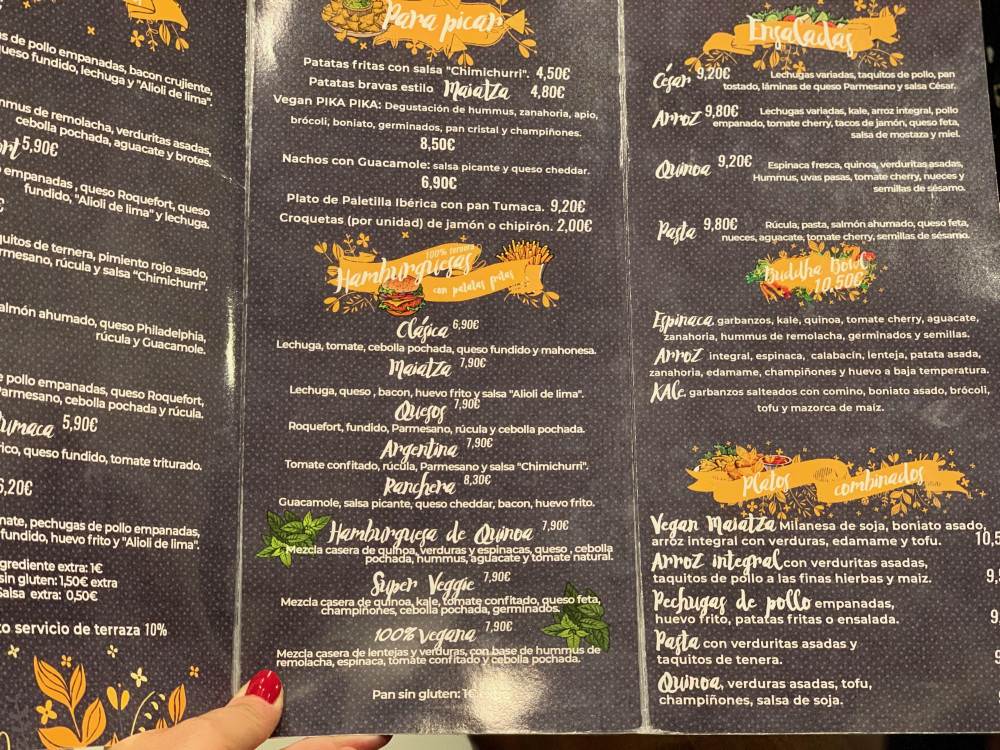 s de pollo empanadas, bacon crujiente,
queso fundido, lechuga y "Alioli de lima".
mmus de remolacha, verduritas asadas,
cebolla pochada, aguacate y brotes.
ort 5,90€
empanadas , queso Roquefort, queso
fundido, "Alioli de lima" y lechuga.
€
quitos de ternera, pimiento rojo asado,
rmesano, rúcula y salsa "Chimichurri".
salmón ahumado, queso Philadelphia,
rúcula y Guacamole.
e pollo empanadas, queso Roquefort,
Parmesano, cebolla pochada y rúcula.
umaca 5,90€
rico, queso fundido, tomate triturado.
6,20€
mate, pechugas de pollo empanadas,
fundido, huevo frito y "Alioli de lima".
ngrediente extra: 1€
sin gluten: 1,50€ extra
Salsa extra: 0,50€
to servicio de terraza 10%
Para picar
Patatas fritas con salsa "Chimichurri". 4,50€
Patatas bravas estilo Maiatza 4,80€
Vegan PIKA PIKA: Degustación de hummus, zanahoria, apio,
brócoli, boniato, germinados, pan cristal y champiñones.
8,50€
Nachos con Guacamole: salsa picante y queso cheddar.
6,90€
Plato de Paletilla Ibérica con pan Tumaca. 9,20€
Croquetas (por unidad) de jamón o chipirón. 2,00€
100% ternera
Hamburguesas
con patatas fritas
Clásica 6,90€
Lechuga, tomate, cebolla pochada, queso fundido y mahonesa.
Maiatza 7,90€
Lechuga, queso , bacon, huevo frito y salsa "Alioli de lima".
Quesos 7,90€
Roquefort, fundido, Parmesano, rúcula y cebolla pochada.
Argentina 7,90€
Tomate confitado, rúcula, Parmesano y salsa "Chimichurri".
Ranchera 8,30€
Guacamole, salsa picante, queso cheddar, bacon, huevo frito.
Hamburguesa de Quinoa 7,90€
Mezcla casera de quinoa, verduras y espinacas, queso , cebolla
pochada, hummus, aguacate y tomate natural.
Super Veggie 7,90€
Mezcla casera de quinoa, kale, tomate confitado, queso feta,
champiñones, cebolla pochada, germinados.
100% Vegana 7,90€
Mezcla casera de lentejas y verduras, con base de hummus de
remolacha, espinaca, tomate confitado y cebolla pochada.
Pan sin gluten: 1€ extra
Ensaladas
César 9,20€ Lechugas variadas, taquitos de pollo, pan
tostado, láminas de queso Parmesano y salsa César.
Arroz 9,80€ Lechugas variadas, kale, arroz integral, pollo
empanado, tomate cherry, tacos de jamón, queso feta,
salsa de mostaza y miel.
Quinoa 9,20€ Espinaca fresca, quinoa, verduritas asadas,
Hummus, uvas pasas, tomate cherry, nueces y
semillas de sésamo.
Pasta 9,80€ Rúcula, pasta, salmón ahumado, queso feta,
nueces, aguacate, tomate cherry, semillas de sésamo.
Buddha Bowl
10,50€
Espinaca, garbanzos, kale, quinoa, tomate cherry, aguacate,
zanahoria, hummus de remolacha, germinados y semillas.
Arroz integral, espinaca, calabacín, lenteja, patata asada,
zanahoria, edamame, champiñones y huevo a baja temperatura.
Kale, garbanzos salteados con comino, boniato asado, brócoli,
tofu y mazorca de maiz.
Platos combinados
Vegan Maiatza Milanesa de soja, boniato asado,
arroz integral con verduras, edamame y tofu. 10,5
Arroz integral con verduritas asadas,
taquitos de pollo a las finas hierbas y maiz. 9,
Pechugas de pollo empanadas,
huevo frito, patatas fritas o ensalada. 9,
Pasta con verduritas asadas y
taquitos de tenera.
Quinoa, verduras asadas, tofu,
champiñones, salsa de soja.